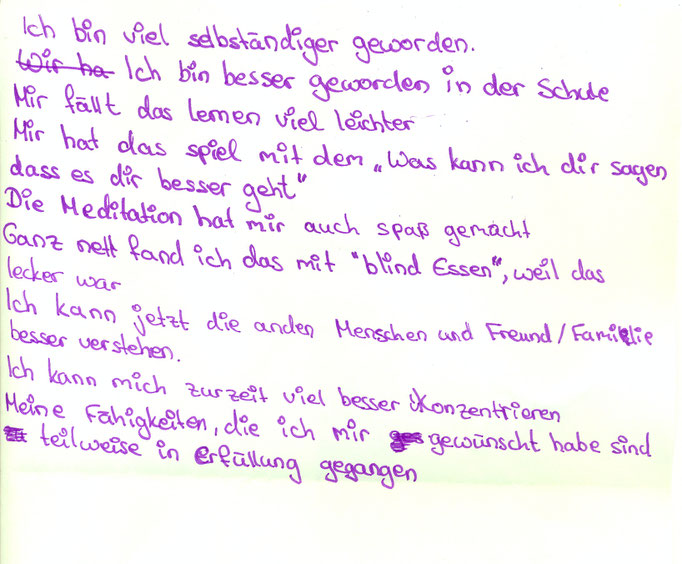 Ich bin viel selbständiger geworden.
Wir ha Ich bin besser geworden in der Schule
Mir fällt das lernen viel leichter
Mir hat das spiel mit dem „Was kann ich dir sagen
dass es dir besser geht"
Die Meditation hat mir auch spaß gemacht
Ganz nett fand ich das mit "blind Essen", weil das
lecker war
Ich kann jetzt die anden Menschen und Freund/Familie
besser verstehen.
Ich kann mich zurzeit viel besser konzentrieren
Meine Fähigkeiten, die ich mir gewünscht habe sind
teilweise in erfüllung gegangen